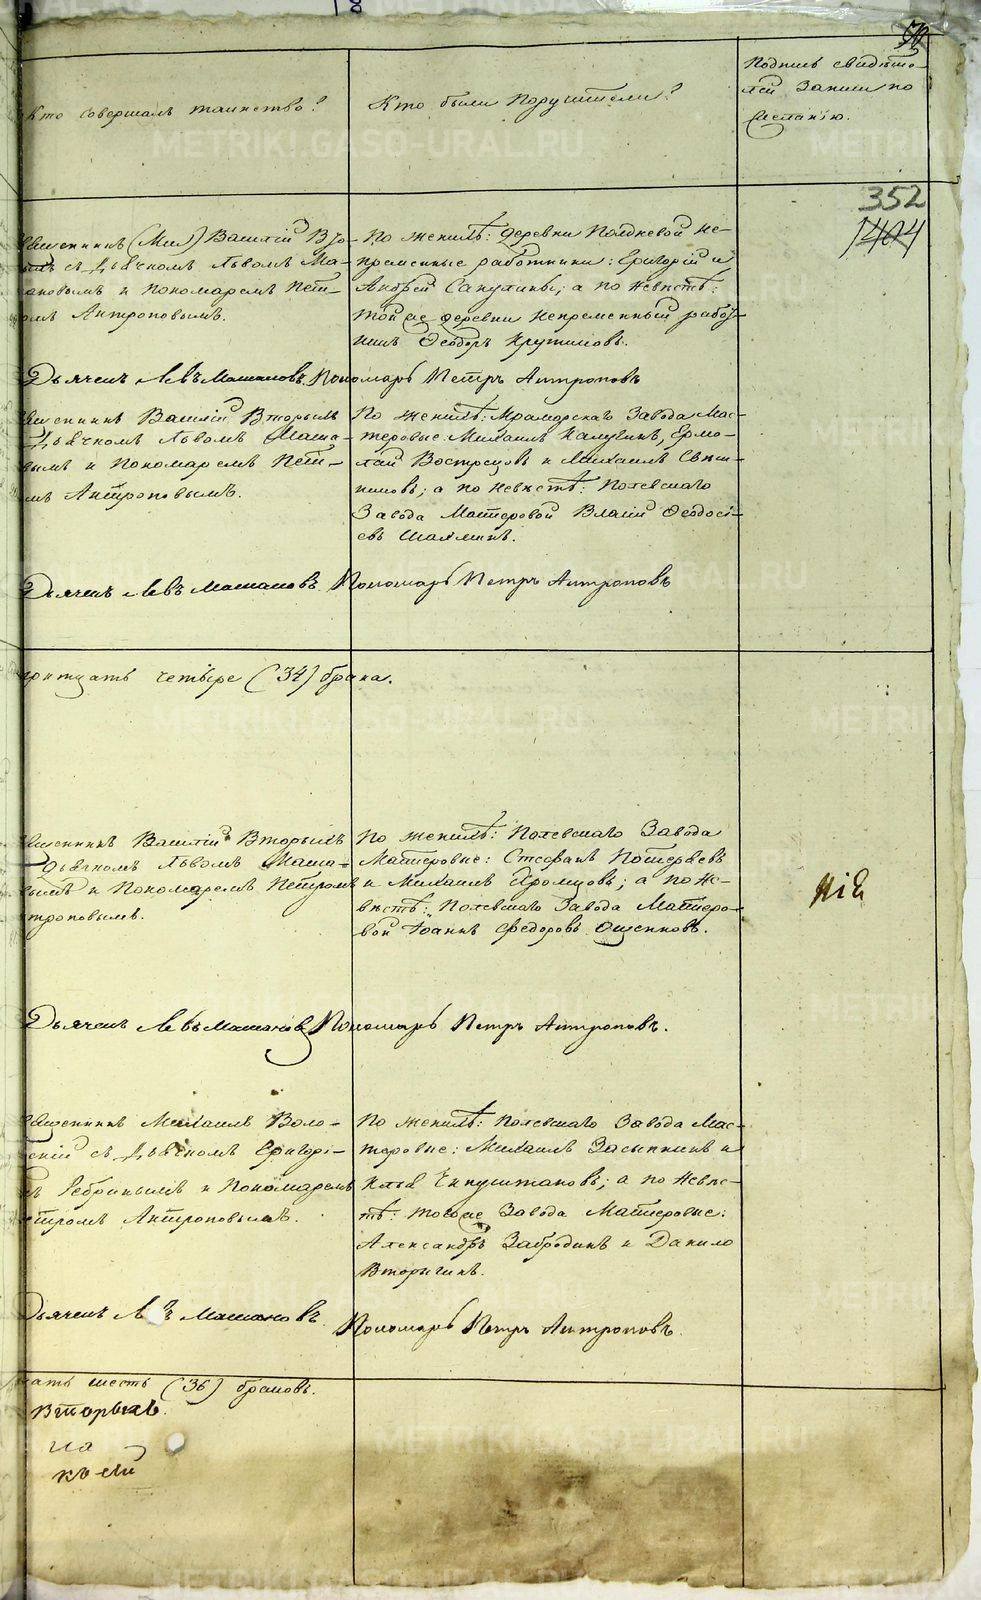 Кто совершалъ таинство?
Кто были поручители?
Подпись свидѣте-
лей записи по
желанію.
352
1404
(Мих) Василій Вто-
съ Дьячкомъ Львомъ Ма-
и Пономаремъ Пет-
Антроповымъ.
По женихѣ: деревни Полдневой не-
премѣнные работники: Григорій и
Андрей Сапулины; а по невѣстѣ:
той же деревни непремѣнный работ-
никъ Ѳеодоръ Крутиковъ.
Дьячекъ Левъ Машановъ. Пономарь Петръ Антроповъ
Василій Вторыхъ
Дьячкомъ Львомъ Маша-
и Пономаремъ Пет-
Антроповымъ.
По женихѣ: Мраморскаго Завода Мас-
теровые: Михаилъ Калугинъ, Ермо-
лай Вострецовъ и Михаилъ
а по невѣстѣ: Полевскаго
Завода Мастеровой Власій Ѳеодосі-
евъ Шахминъ.
Дьячекъ Левъ Машановъ. Пономарь Петръ Антроповъ
тритцать четыре (34) брака.
Василій Вторыхъ
Дьячкомъ Львомъ Маша-
и Пономаремъ Петромъ
нтроповымъ.
По женихѣ: Полевскаго Завода
Мастеровые: Стефанъ Потеряевъ
и Михаилъ Хромцовъ; а по не-
вѣстѣ: Полевскаго Завода Мастеро-
вой Іоаннъ Федоровъ Ощепковъ.
Дьячекъ Левъ Машановъ Пономарь Петръ Антроповъ.
Михаилъ Воло-
съ Дьячкомъ Григорі-
Ребринымъ и Пономаремъ
етромъ Антроповымъ.
По женихѣ: Полевскаго Завода Мас-
теровые: Михаилъ Засыпкинъ и
Илья Чипуштановъ; а по невѣс-
тѣ: тогоже Завода Мастеровые:
Александръ Забродинъ и Данило
Вторыгинъ.
Дьячекъ Левъ Машановъ. Пономарь Петръ Антроповъ.
цать шесть (36) браковъ.
Вторыхъ.
на